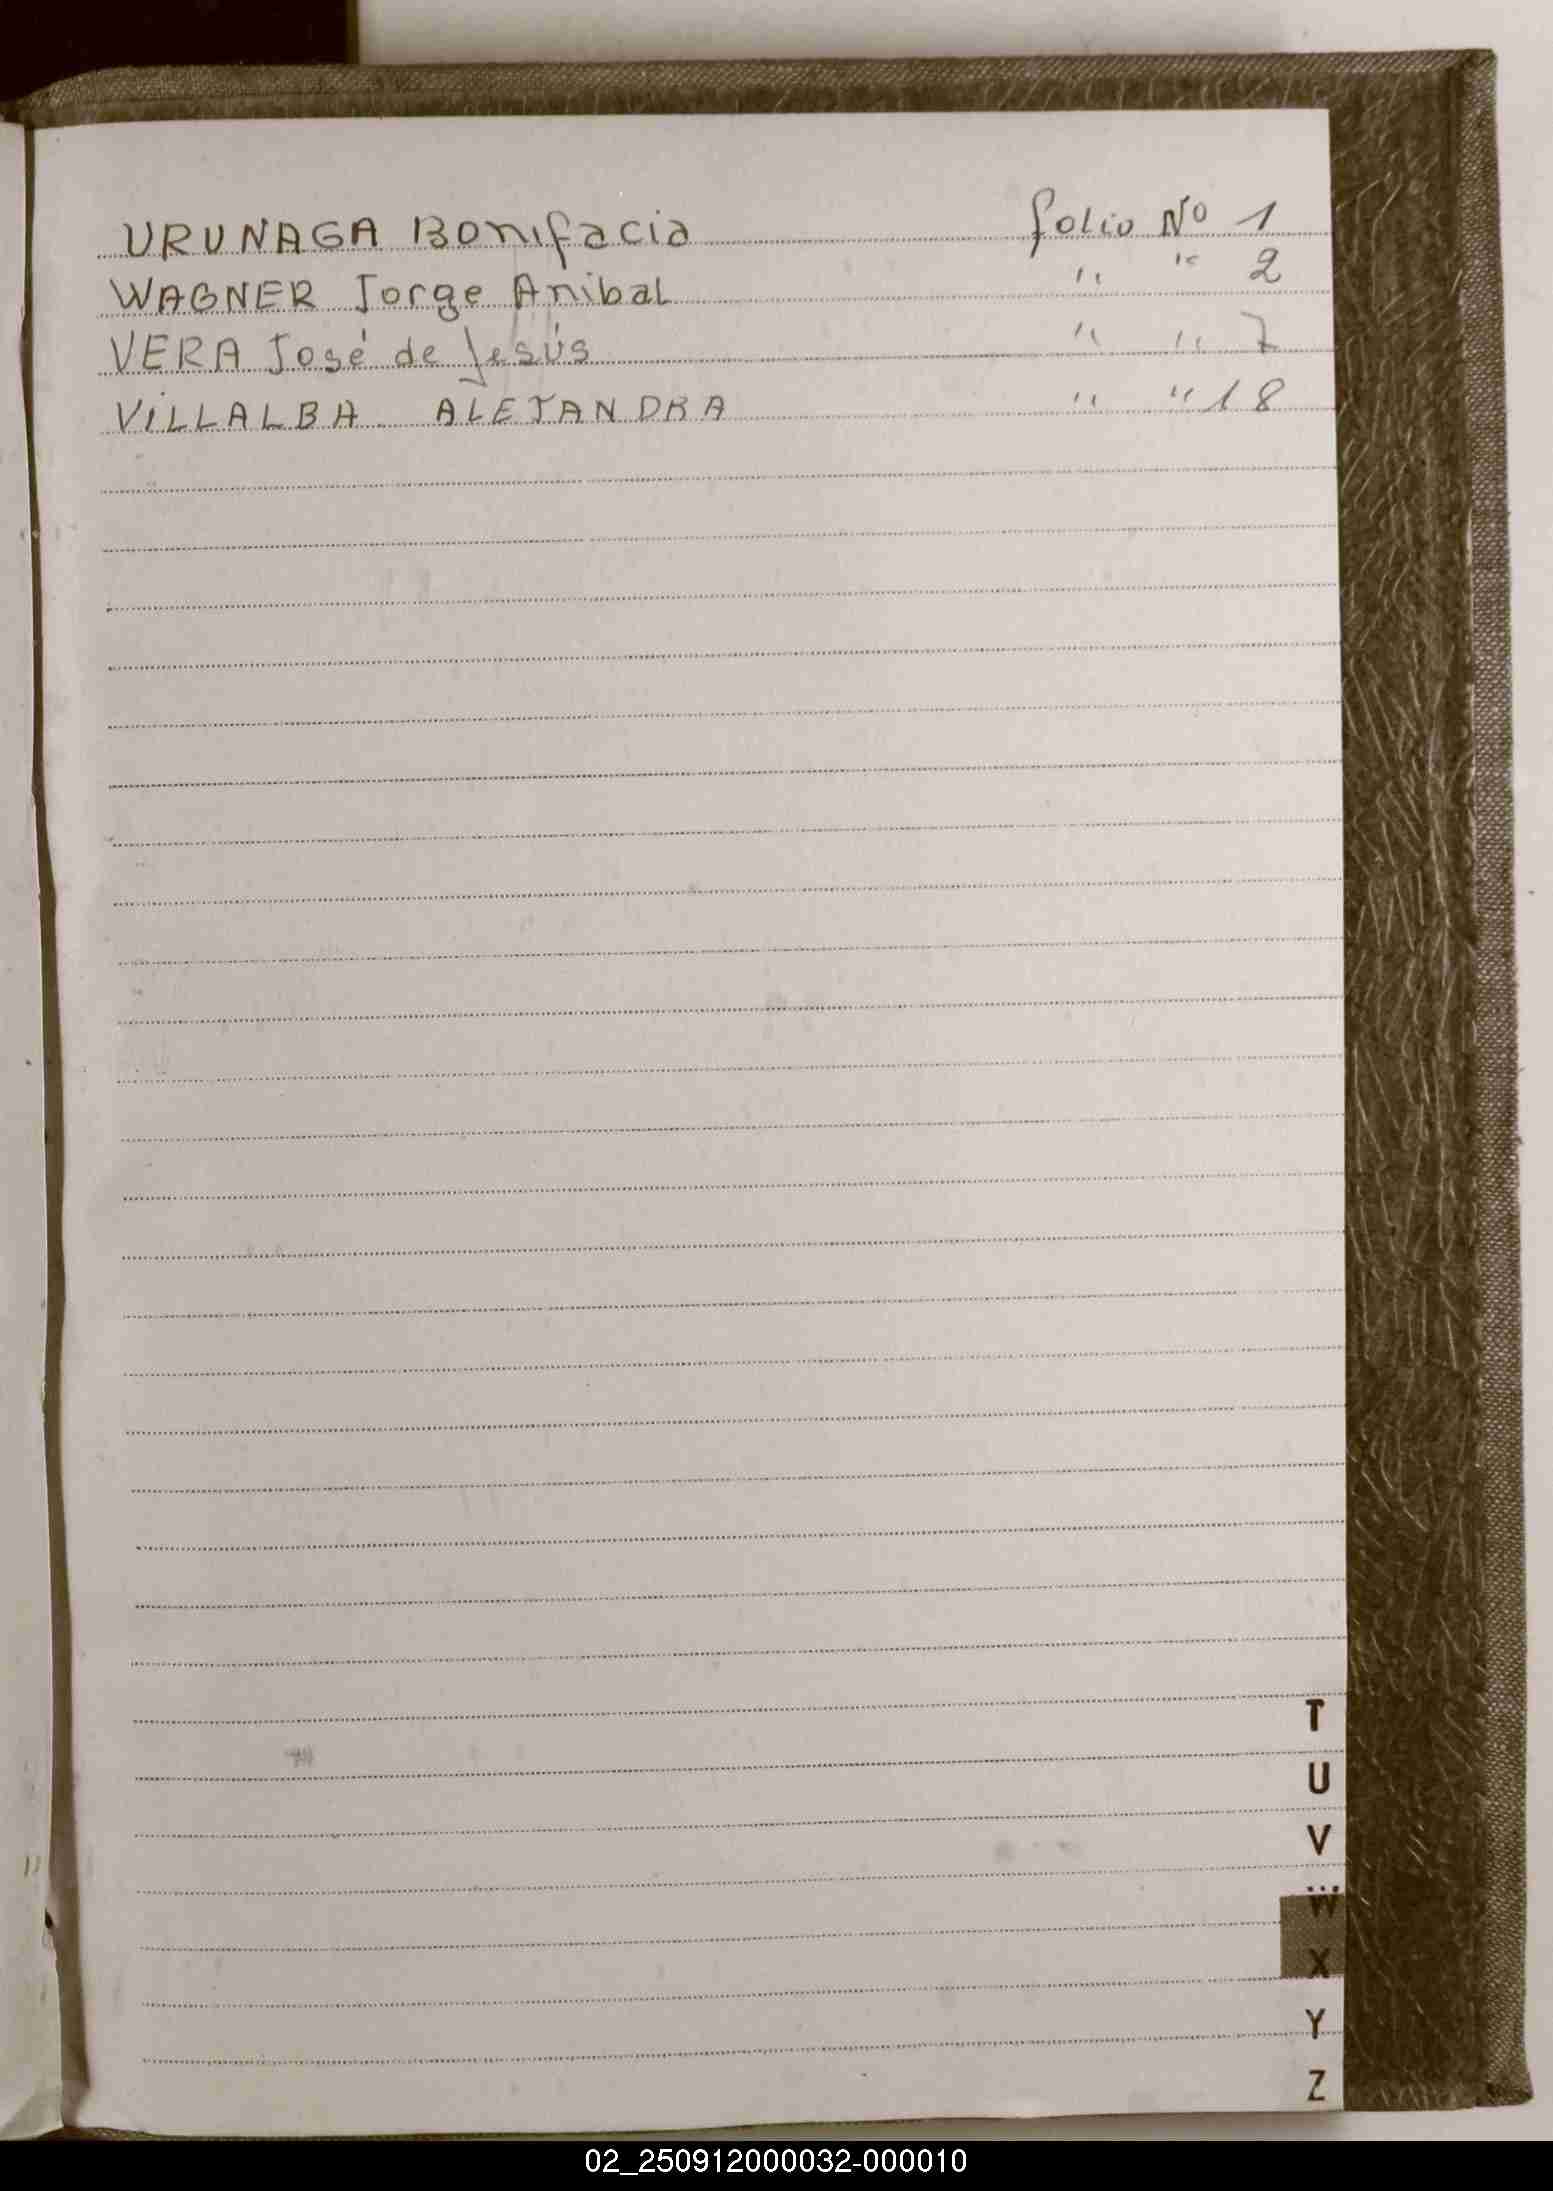 URUNAGA Bonifacia folio Nº 1
WAGNER Jorge Anibal " " 2
VERA José de Jesús " " 7
VILLALBA ALEJANDRA " " 18
T
U
V
W
X
Y
Z
02_250912000032-000010